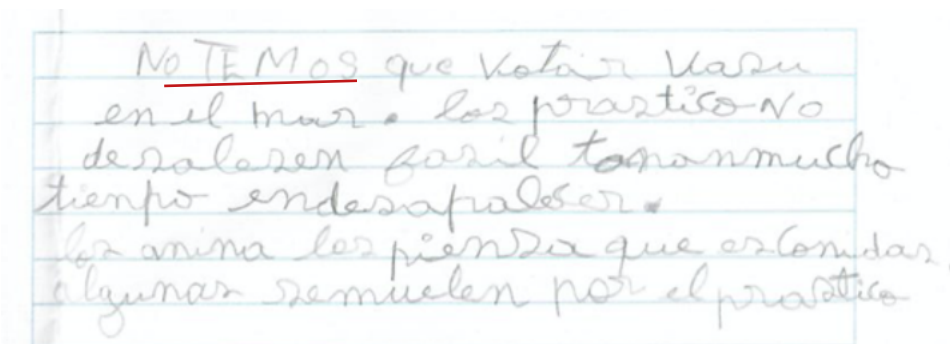 No TEMOS que votar vasu
en el mar. los prastico No
desalesen fasil tomanmucho
tienpo endesapaleser.
los anima les piensa que es Comidas
algunas semuelen por el prastico